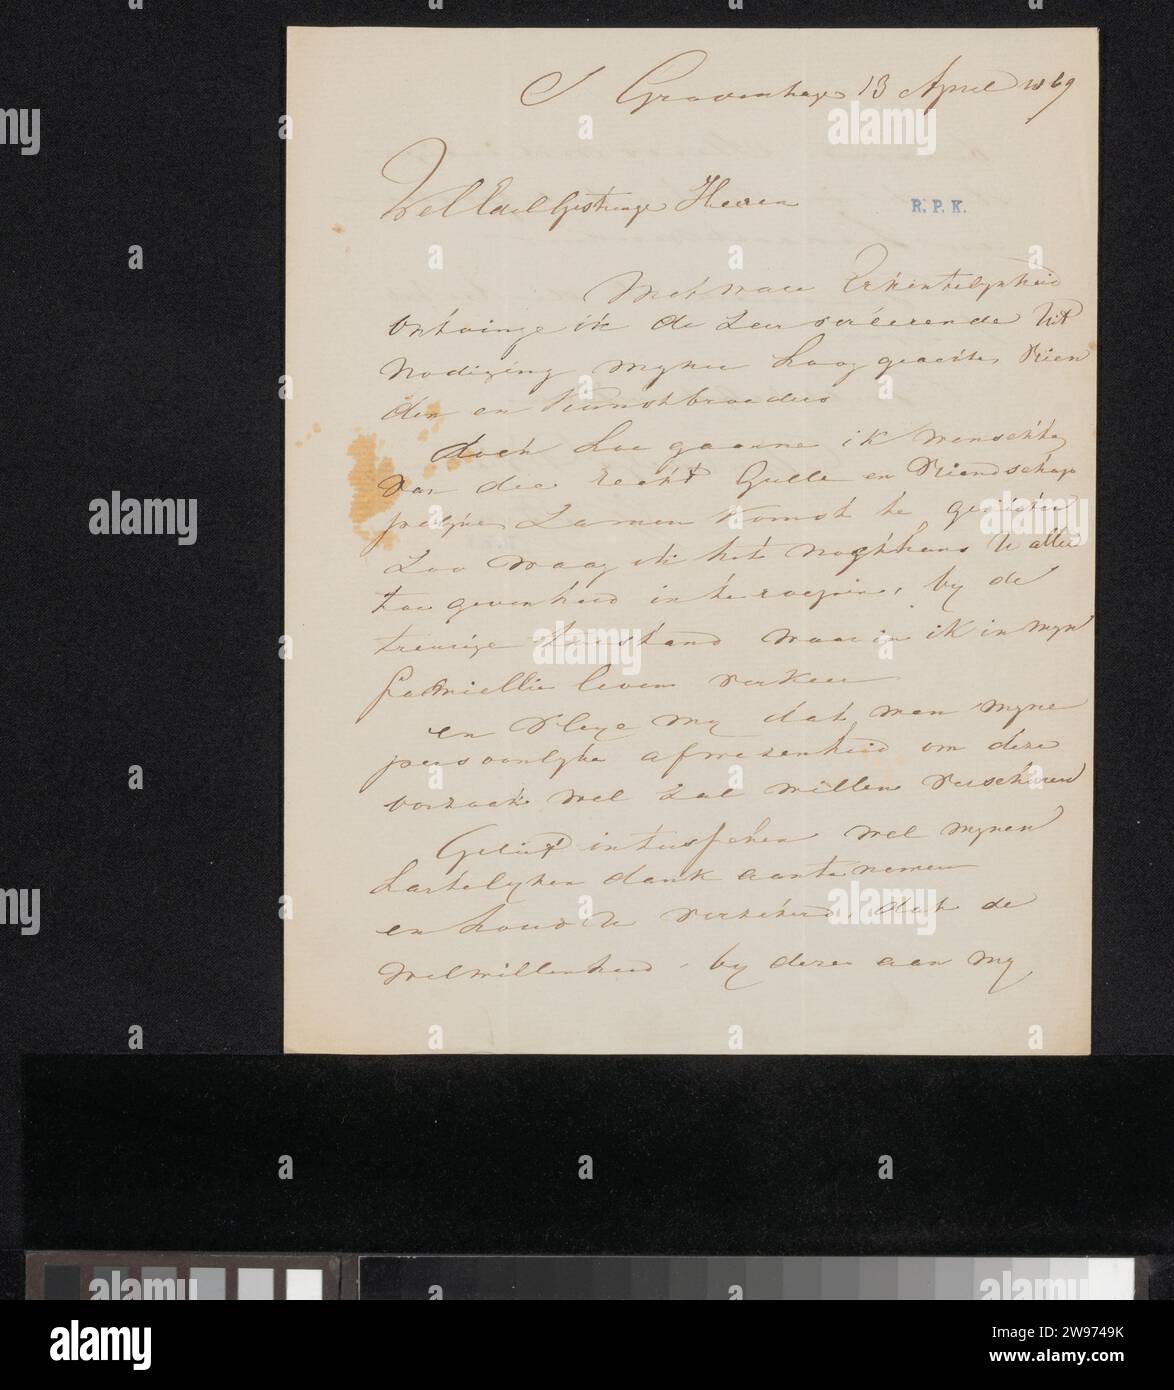 S Gravenhage 13 April 1869
WelEdelGestrenge Heeren
R. P. K.
Met ware Erkentelykheid
ontvinge ik de zeer vereerende Uit
Nodiging myner Hoog geachte Vrien
den en Kunstbroeders
doch hoe gaarne ik wenschte
van die recht Gulle en Vriendschap
pelyke Zamen Komst te genieten
Zoo waag ik het nogthans U aller
toegevenheid in te roepen, by de
treurige toestand waar in ik in myn
familie leven verkeer
en Vleye my dat men myne
persoonlyke afwezenheid om deze
oorzaak wel zal willen verschoonen
Gelieft intusschen wel mynen
hartelyken dank aan te nemen
en houd U verzekerd, dat de
welwillenheid by deze aan my
alamy
Image ID: 2W9749K
www.alamy.com